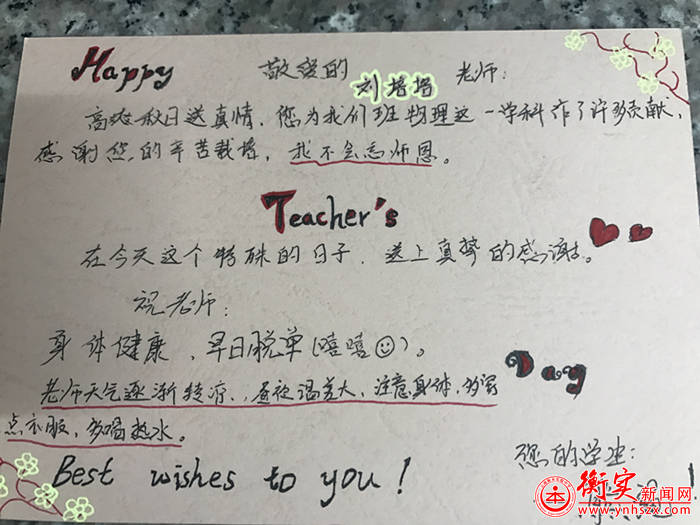 Happy 敬爱的 刘培培 老师:
高爽秋日送真情,您为我们班物理这一学科作了许多贡献,
感谢您的辛苦栽培,我不会忘师恩。
Teacher's
在今天这个特殊的日子,送上真挚的感谢。
祝老师:
身体健康,早日脱单(嘻嘻☺)。
Day
老师天气逐渐转凉,昼夜温差大,注意身体,多穿
点衣服,多喝热水。
您的学生:
Best wishes to you!
衡实新闻网
www.ynhszx.com